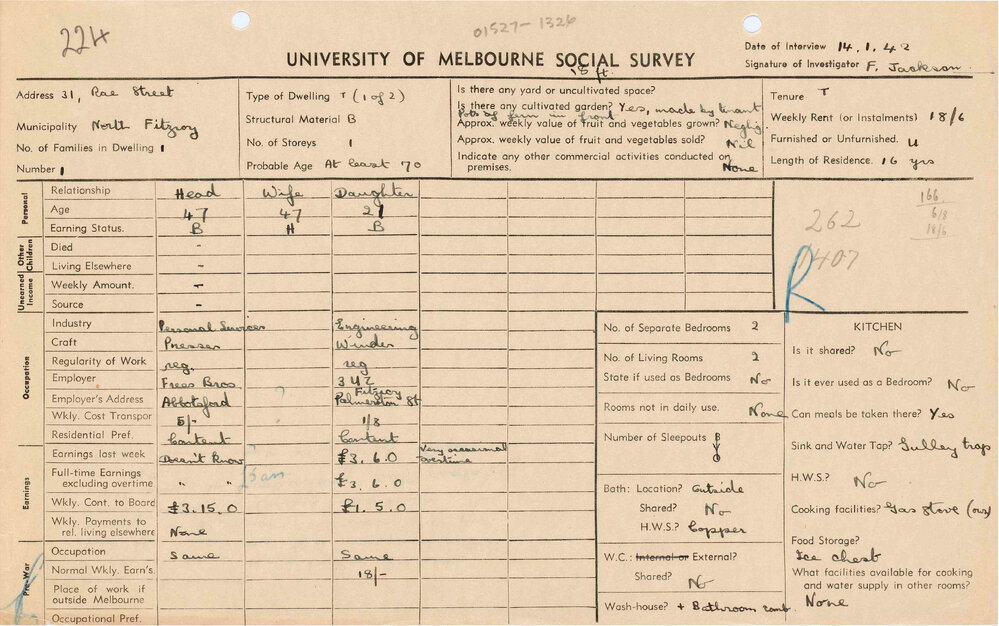 224
01527-1326
UNIVERSITY OF MELBOURNE SOCIAL SURVEY
Date of Interview 14.1.42
Signature of Investigator F. Jackson.
Address 31, Rae Street
Municipality North Fitzroy
No. of Families in Dwelling 1
Number 1
Type of Dwelling T (1 of 2)
Structural Material B
No. of Storeys 1
Probable Age At least 70
18 ft.
Is there any yard or uncultivated space?
Is there any cultivated garden? Yes, made by tenant
Pots of fern in front
Approx. weekly value of fruit and vegetables grown? Neglig.
Approx. weekly value of fruit and vegetables sold? Nil
Indicate any other commercial activities conducted on premises. None
Tenure T
Weekly Rent (or Instalments) 18/6
Furnished or Unfurnished. U
Length of Residence. 16 yrs
Personal
Relationship Head Wife Daughter
Age 47 47 21
Earning Status. B H B
Other Children
Died -
Living Elsewhere -
Unearned Income
Weekly Amount. -
Source -
166
6/8
18/6
262
1407
R
Occupation
Industry Personal Services Engineering
Craft Presser Winder
Regularity of Work reg. reg
Employer Frees Bros. 3UZ
Employer's Address Abbotsford ? Fitzroy Palmerston St
Wkly. Cost Transpor 5/- 1/8
Residential Pref. Content Content
Earnings
Earnings last week Doesn't Know £3.6.0 Very occasional overtime
Full-time Earnings excluding overtime " " £3.6.0
Wkly. Cont. to Board £3.15.0 £1.5.0
Wkly. Payments to rel. living elsewhere None
Pre-War
Occupation Same Same
Normal Wkly. Earn's. 18/-
Place of work if outside Melbourne
Occupational Pref.
No. of Separate Bedrooms 2
No. of Living Rooms 2
State if used as Bedrooms No
Rooms not in daily use. None
Number of Sleepouts B 0
Bath: Location? Outside
Shared? No
H.W.S.? Copper
W.C.: Internal or External?
Shared? No
Wash-house? + Bathroom comb.
KITCHEN
Is it shared? No
Is it ever used as a Bedroom? No
Can meals be taken there? Yes
Sink and Water Tap? Gulley trap
H.W.S.? No
Cooking facilities? Gas stove (own)
Food Storage?
Ice chest
What facilities available for cooking
and water supply in other rooms?
None